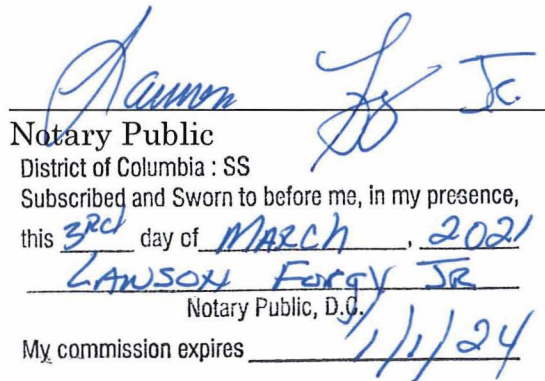 Lawson Jr.
Notary Public
District of Columbia : SS
Subscribed and Sworn to before me, in my presence,
this 3RD day of MARCH, 2021
LAWSON Forgy JR
Notary Public, D.C.
My commission expires 1/1/24